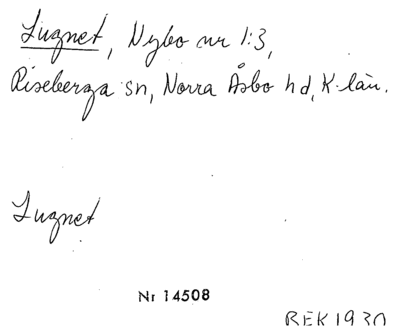 Lugnet, Nybo nr 1:3,
Riseberga sn, Norra Åsbo hd, K-län.
Lugnet
Nr 14508
BEK 1930